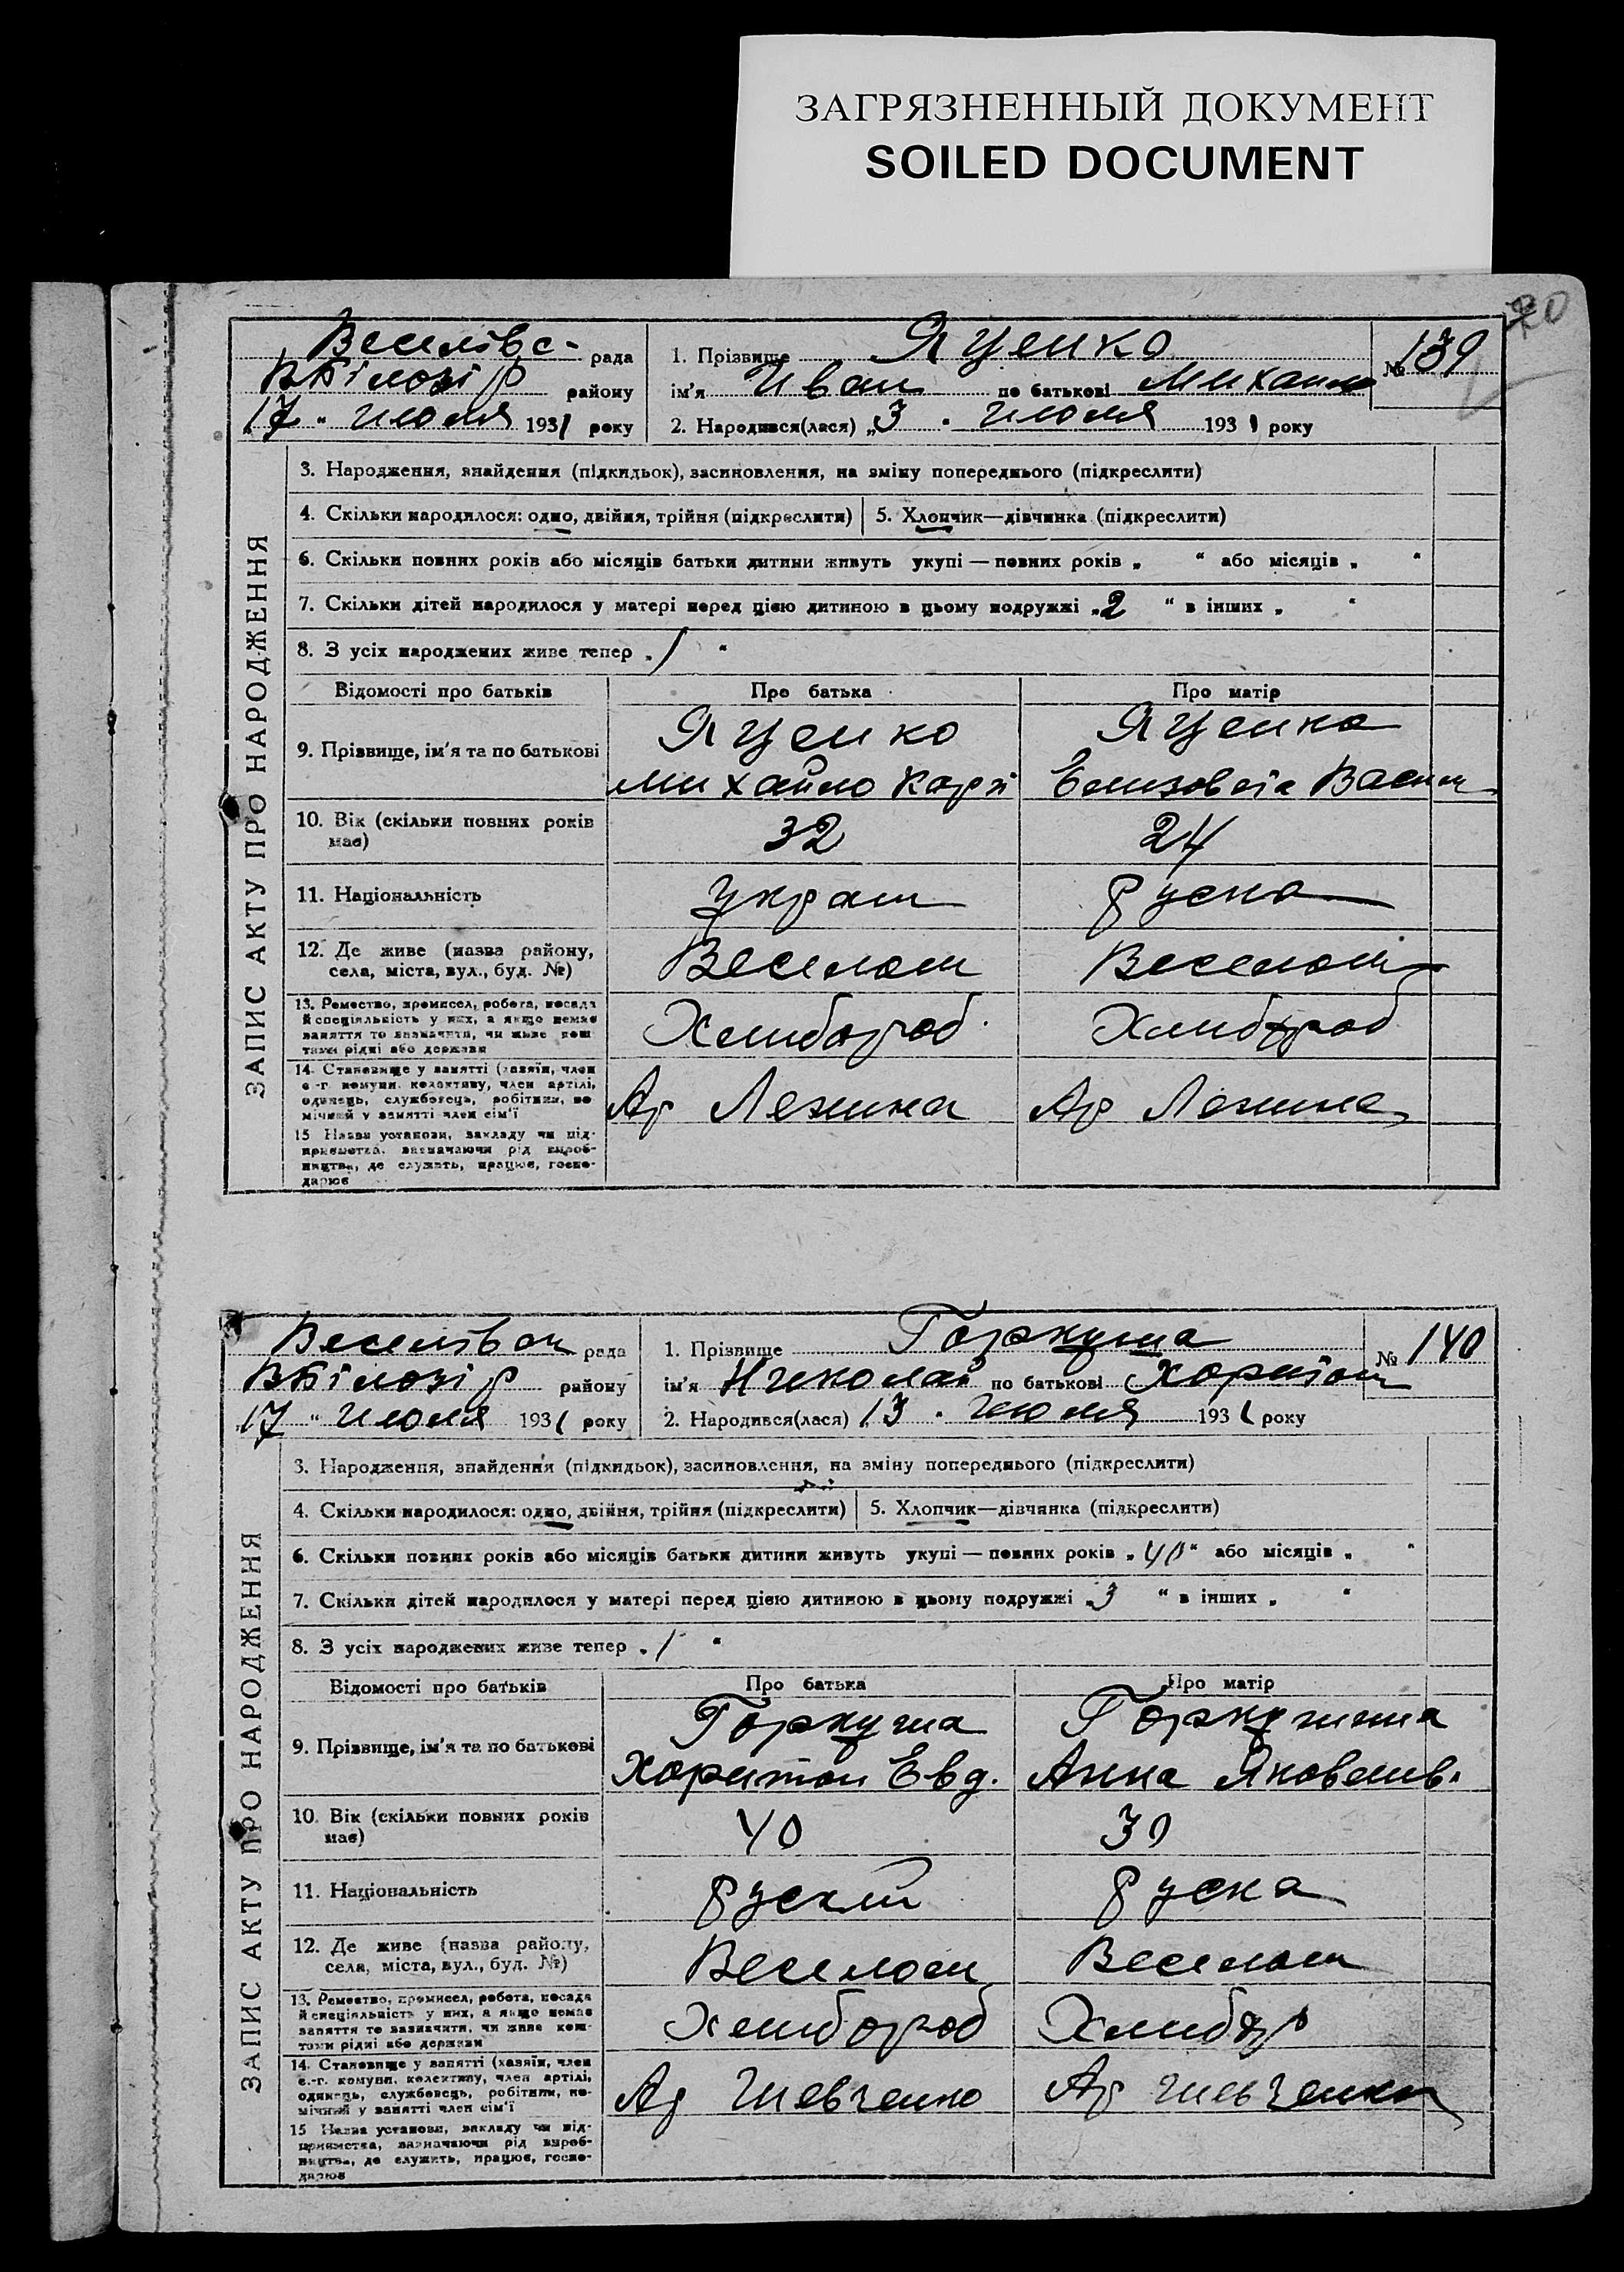 ЗАГРЯЗНЕННЫЙ ДОКУМЕНТ
SOILED DOCUMENT
20
Веселівс- рада
ВБілозір району
17 " июля 1931 року
1. Прізвище Яценко
ім'я Иван по батькові Михайл
2. Народився(лася) „3 " июля 1931 року
№ 139
ЗАПИС АКТУ ПРО НАРОДЖЕННЯ
3. Народження, знайдення (підкидьок), засиновлення, на зміну попереднього (підкреслити)
4. Скільки народилося: одно, двійня, трійня (підкреслити) 5. Хлопчик—дівчинка (підкреслити)
6. Скільки повних років або місяців батьки дитини живуть укупі — повних років „ “ або місяців „ “
7. Скільки дітей народилося у матері перед цією дитиною в цьому подружжі „2 “ в інших „ “
8. З усіх народжених живе тепер „ 1 “
Відомості про батьків Про батька Про матір
9. Прізвище, ім'я та по батькові
Яценко
Михайло Карп
Яценко
Елизовета Васил
10. Вік (скільки повних років має) 32 24
11. Національність украин руска
12. Де живе (назва району, села, міста, вул., буд. №) Веселом Веселом
13. Ремество, промисел, робота, посада
й спеціяльність у них, а якщо немає
заняття то зазначити, чи живе кош-
тами рідні або держави
Хлибороб Хлибороб
14. Становище у занятті (хазяїн, член
с.-г. комуни, колективу, член артілі,
одинець, службовець, робітник, по-
мічний у занятті член сім'ї
Ар Ленина Ар Ленина
15 Назва установи, закладу чи під-
приємства, зазначаючи рід вироб-
ництва, де служить, працює, госпо-
дарює
Веселівск рада
ВБілозір району
17 " июля 1931 року
1. Прізвище Горкуша
ім'я Николай по батькові Харитон
2. Народився(лася) 13 " июля 1931 року
№ 140
ЗАПИС АКТУ ПРО НАРОДЖЕННЯ
3. Народження, знайдення (підкидьок), засиновлення, на зміну попереднього (підкреслити)
4. Скільки народилося: одно, двійня, трійня (підкреслити) 5. Хлопчик—дівчинка (підкреслити)
6. Скільки повних років або місяців батьки дитини живуть укупі — повних років „ 40 “ або місяців „ “
7. Скільки дітей народилося у матері перед цією дитиною в цьому подружжі „3 “ в інших „ “
8. З усіх народжених живе тепер „ 1 “
Відомості про батьків Про батька Про матір
9. Прізвище, ім'я та по батькові
Горкуша
Харитон Евд.
Горкушина
Анна Яковлив.
10. Вік (скільки повних років має) 40 30
11. Національність руский руска
12. Де живе (назва району, села, міста, вул., буд. №) Веселом Веселом
13. Ремество, промисел, робота, посада
й спеціяльність у них, а якщо немає
заняття то зазначити, чи живе кош-
тами рідні або держави
Хлибороб Хлибор
14. Становище у занятті (хазяїн, член
с.-г. комуни, колективу, член артілі,
одинець, службовець, робітник, по-
мічний у занятті член сім'ї
Ар Шевченко Ар Шевченка
15 Назва установи, закладу чи під-
приємства, зазначаючи рід вироб-
ництва, де служить, працює, госпо-
дарює